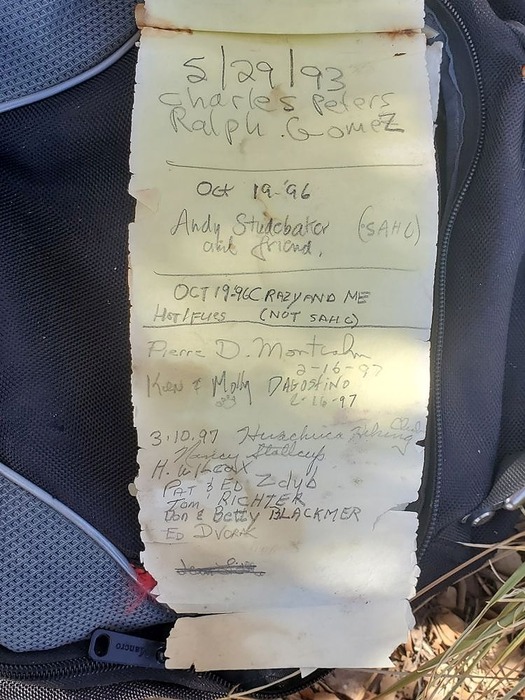 5/29/93
Charles Peters
Ralph Gomez
Oct 19-'96
Andy Studebaker (SAHC)
and friend.
OCT 19-96 CRAZY AND ME
HOT/FLIES (NOT SAHC)
Pierre D. Montcalm
2-16-97
Ken & Molly DAGOSTINO
2-16-97
3.10.97 Huachuca Hiking Club
Nancy Stallcup
H. WILCOX
PAT & ED Zdyb
Tom RICHTER
Don & Betty BLACKMER
ED Dvorak